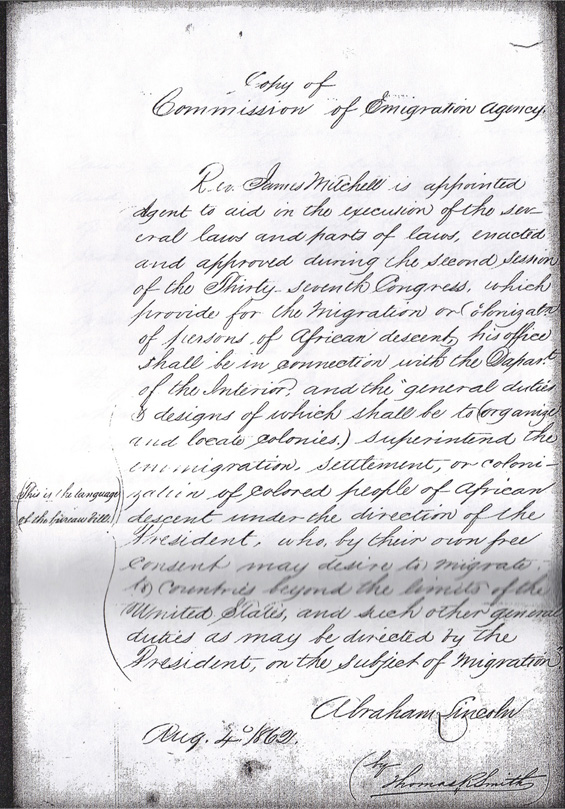 Copy of
Commission of Emigration Agency.
Rev. James Mitchell is appointed
Agent to aid in the execution of the sev-
eral laws and parts of laws, enacted
and approved during the second session
of the Thirty-seventh Congress, which
provide for the Migration or Colonizatn
of persons of African descent, his office
shall be in connection with the Depart.
of the Interior: and the "general duties
& designs of which shall be to (organize
and locate colonies,) superintend the
emmigration, settlement, or coloni-
zation of colored people of African
descent under the direction of the
President, who, by their own free
consent may desire to migrate
to countries beyond the limits of the
United States, and such other general
duties as may be directed by the
President, on the subject of Migration"
(This is the language
of the bureau bill.)
Abraham Lincoln
Aug. 4th 1862.
(by
Thomas R Smith)